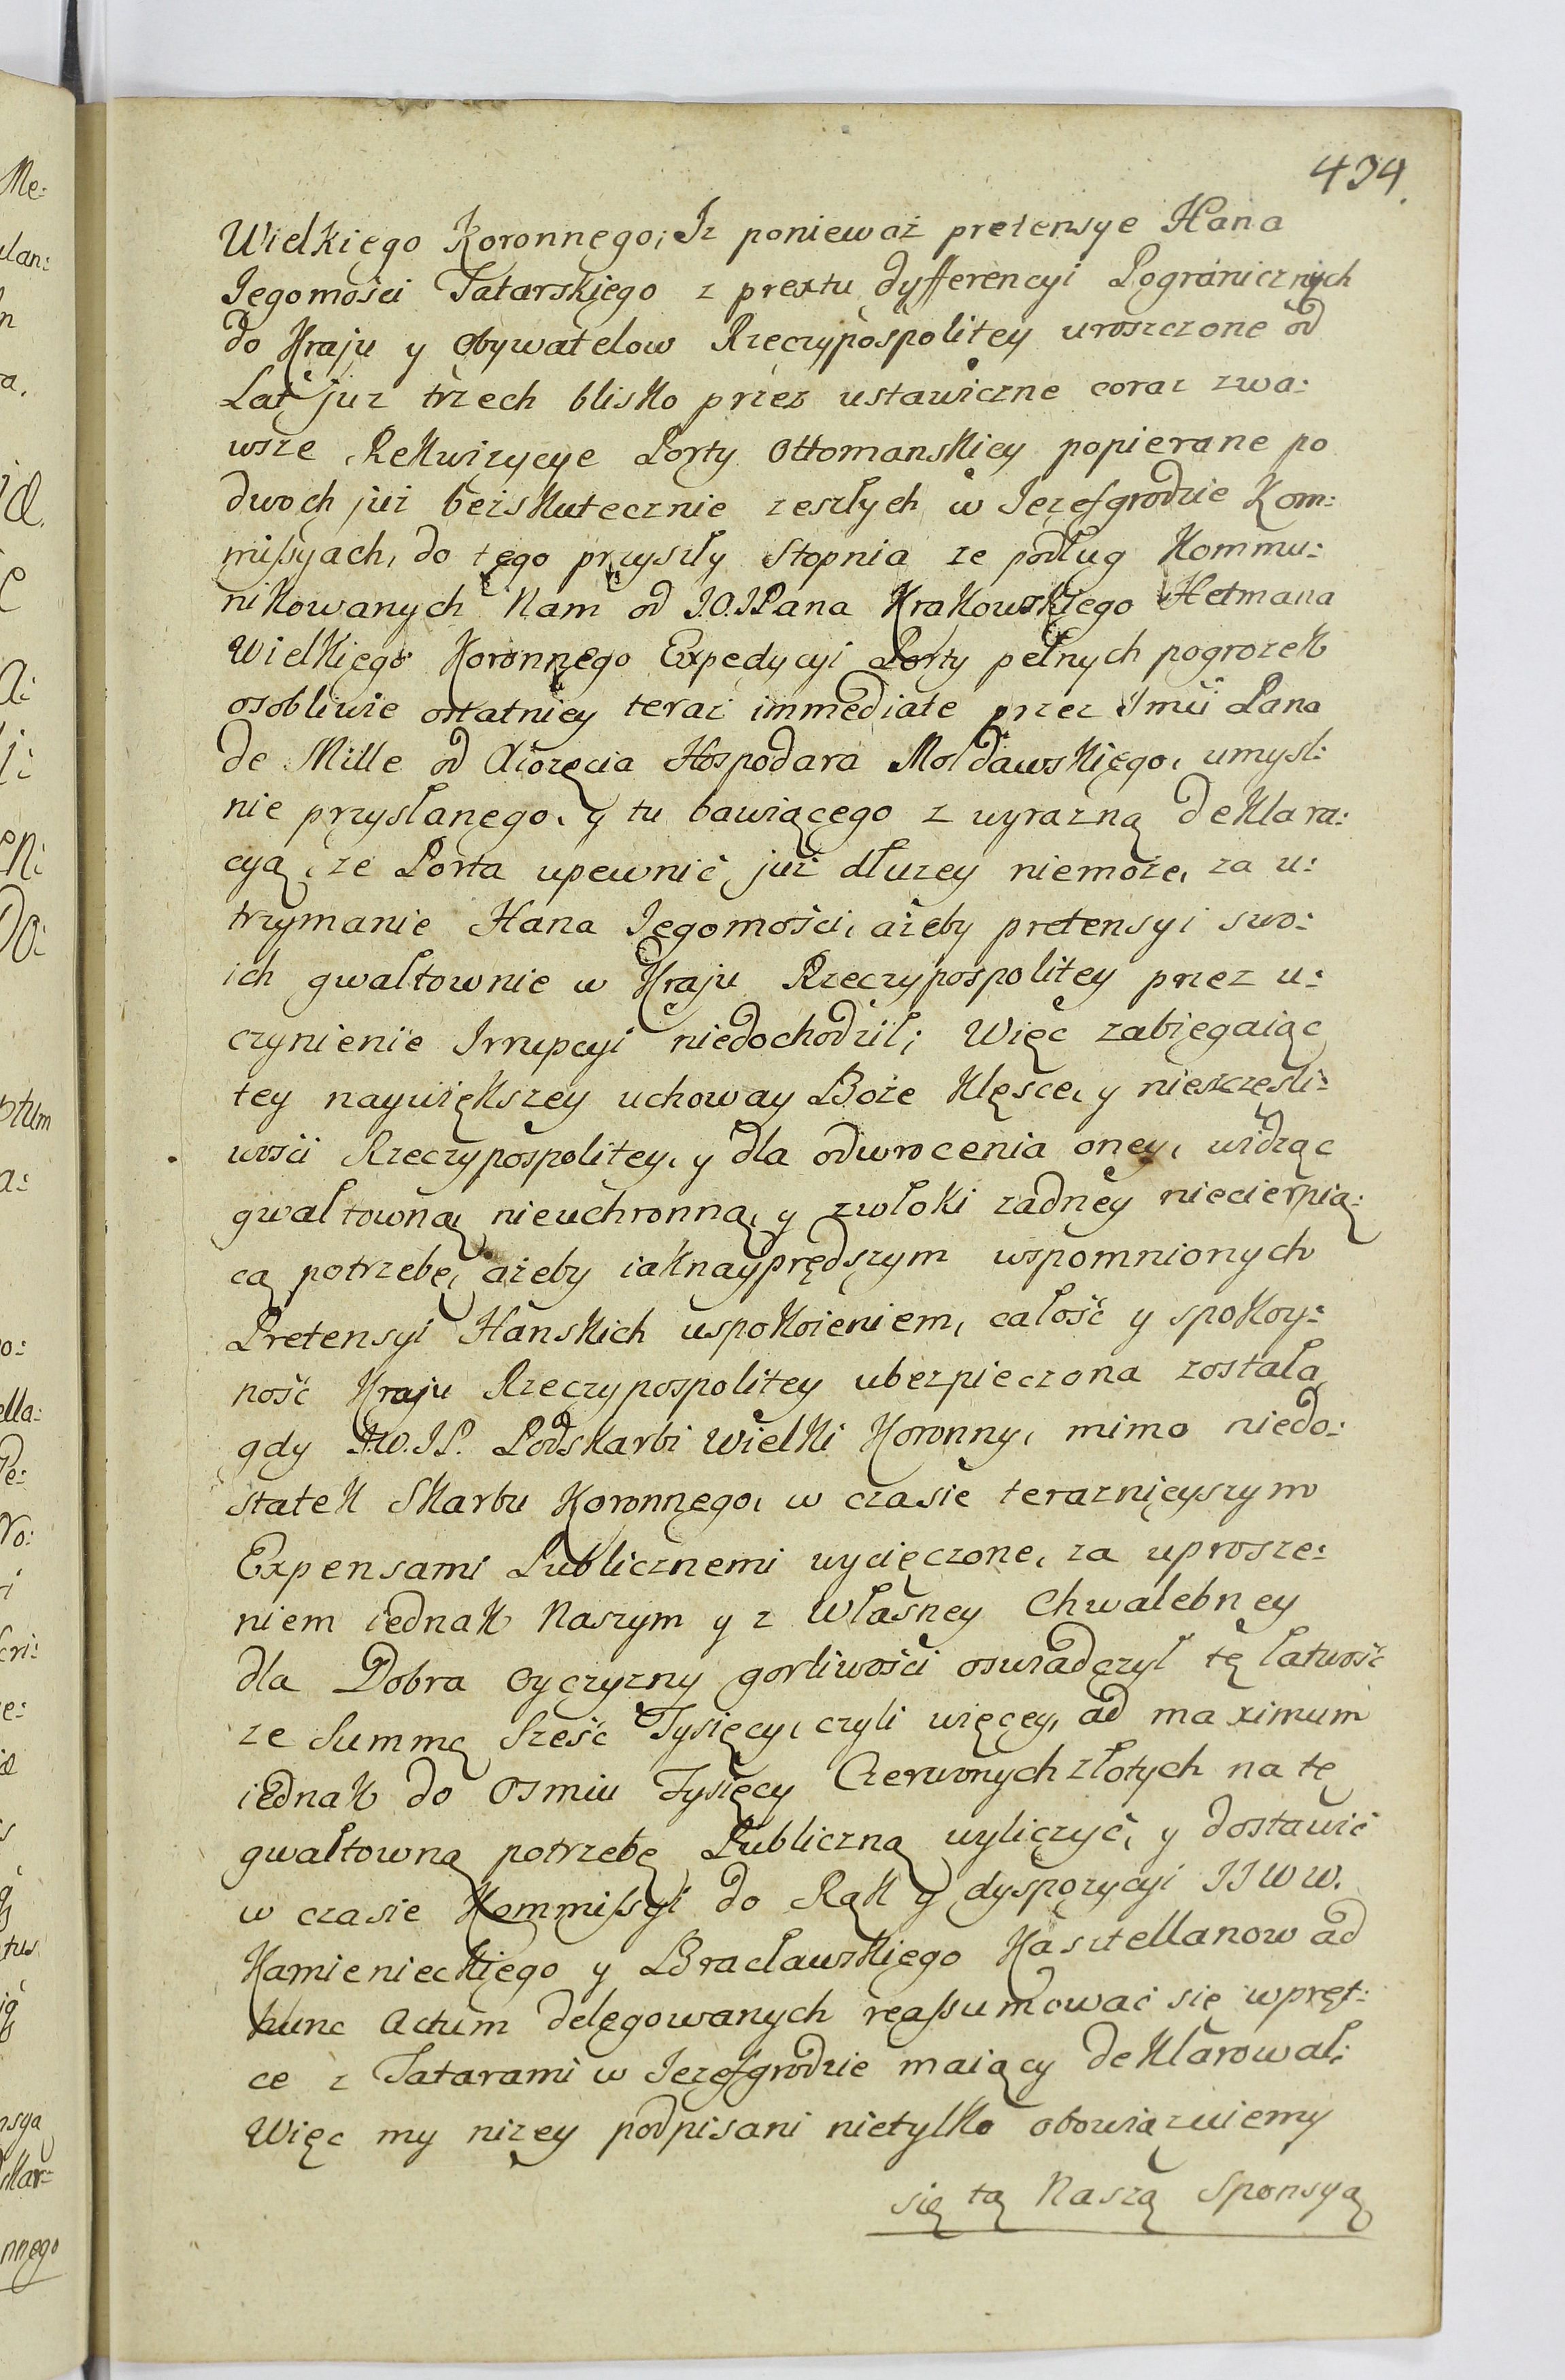 434.
Wielkiego Koronnego; Iz ponieważ pretensye Hana
Jegomości Tatarskiego z prextu dyfferencyi Pogranicznych
do Kraju y Obywatelow Rzeczypospolitey uroszczone od
Lat już trzech blisko przez ustawiczne coraz zwa:
wsze Rekwizycye Porty Ottomanskiey popierane po
dwoch już bezskutecznie zeszłych w Jezefgrodzie Kom:
missyach, do tego przyszły stopnia ze podług Kommu:
nikowanych Nam od J.O.JPana Krakowskiego Hetmana
Wielkiego Koronnego Expedycyi Porty pełnych pogrozek
osobliwie ostatniey teraz immediate przez Jmci Pana
de Mille od Xiożęcia Hospodara Mołdawskiego, umyśl:
nie przysłanego, y tu bawiącego z wyrazną deklara:
cyą, ze Porta upewnić już dłuzey niemoże, za u:
trzymanie Hana Jegomości, ażeby pretensyi swo:
ich gwałtownie w Kraju Rzeczypospolitey przez u:
czynienie Irrupcyi niedochodził; Więc zabiegaiąc
tey naywiększey uchoway Boże Klęsce, y nieszczęśli:
wości Rzeczypospolitey, y dla odwrocenia oney, widząc
gwałtowną, nieuchronną, y zwłoki zadney niecierpią:
cą potrzebę, ażeby iaknayprędszym wspomnionych
Pretensyi Hanskich uspokoieniem, całość y spokoy:
ność Kraju Rzeczypospolitey ubezpieczona została
gdy J.W.JP. Podskarbi Wielki Koronny, mimo niedo:
statek Skarbu Koronnego, w czasie teraznieyszym
Expensami Publicznemi wycięczone, za uprosze:
niem iednak Naszym y z własney Chwalebney
dla Dobra Oyczyzny gorliwości oswiadczył tę łatwość
ze Summę Sześć Tysięcy, czyli więcey, ad maximum
iednak do Osmiu Tysięcy Czerwonych złotych na tę
gwałtowną potrzebę Publiczną wyliczyć, y dostawić
w czasie Kommissyi do Rąk y dyspozycyi JJWW.
Kamienieckiego y Bracławskiego Kasztellanow ad
hunc Actum delegowanych reassumować się wpręt:
ce z Tatarami w Jezefgrodzie maiący deklarował:
Więc my nizey podpisani nietylko obowiązuiemy
się tą Naszą Sponsyą